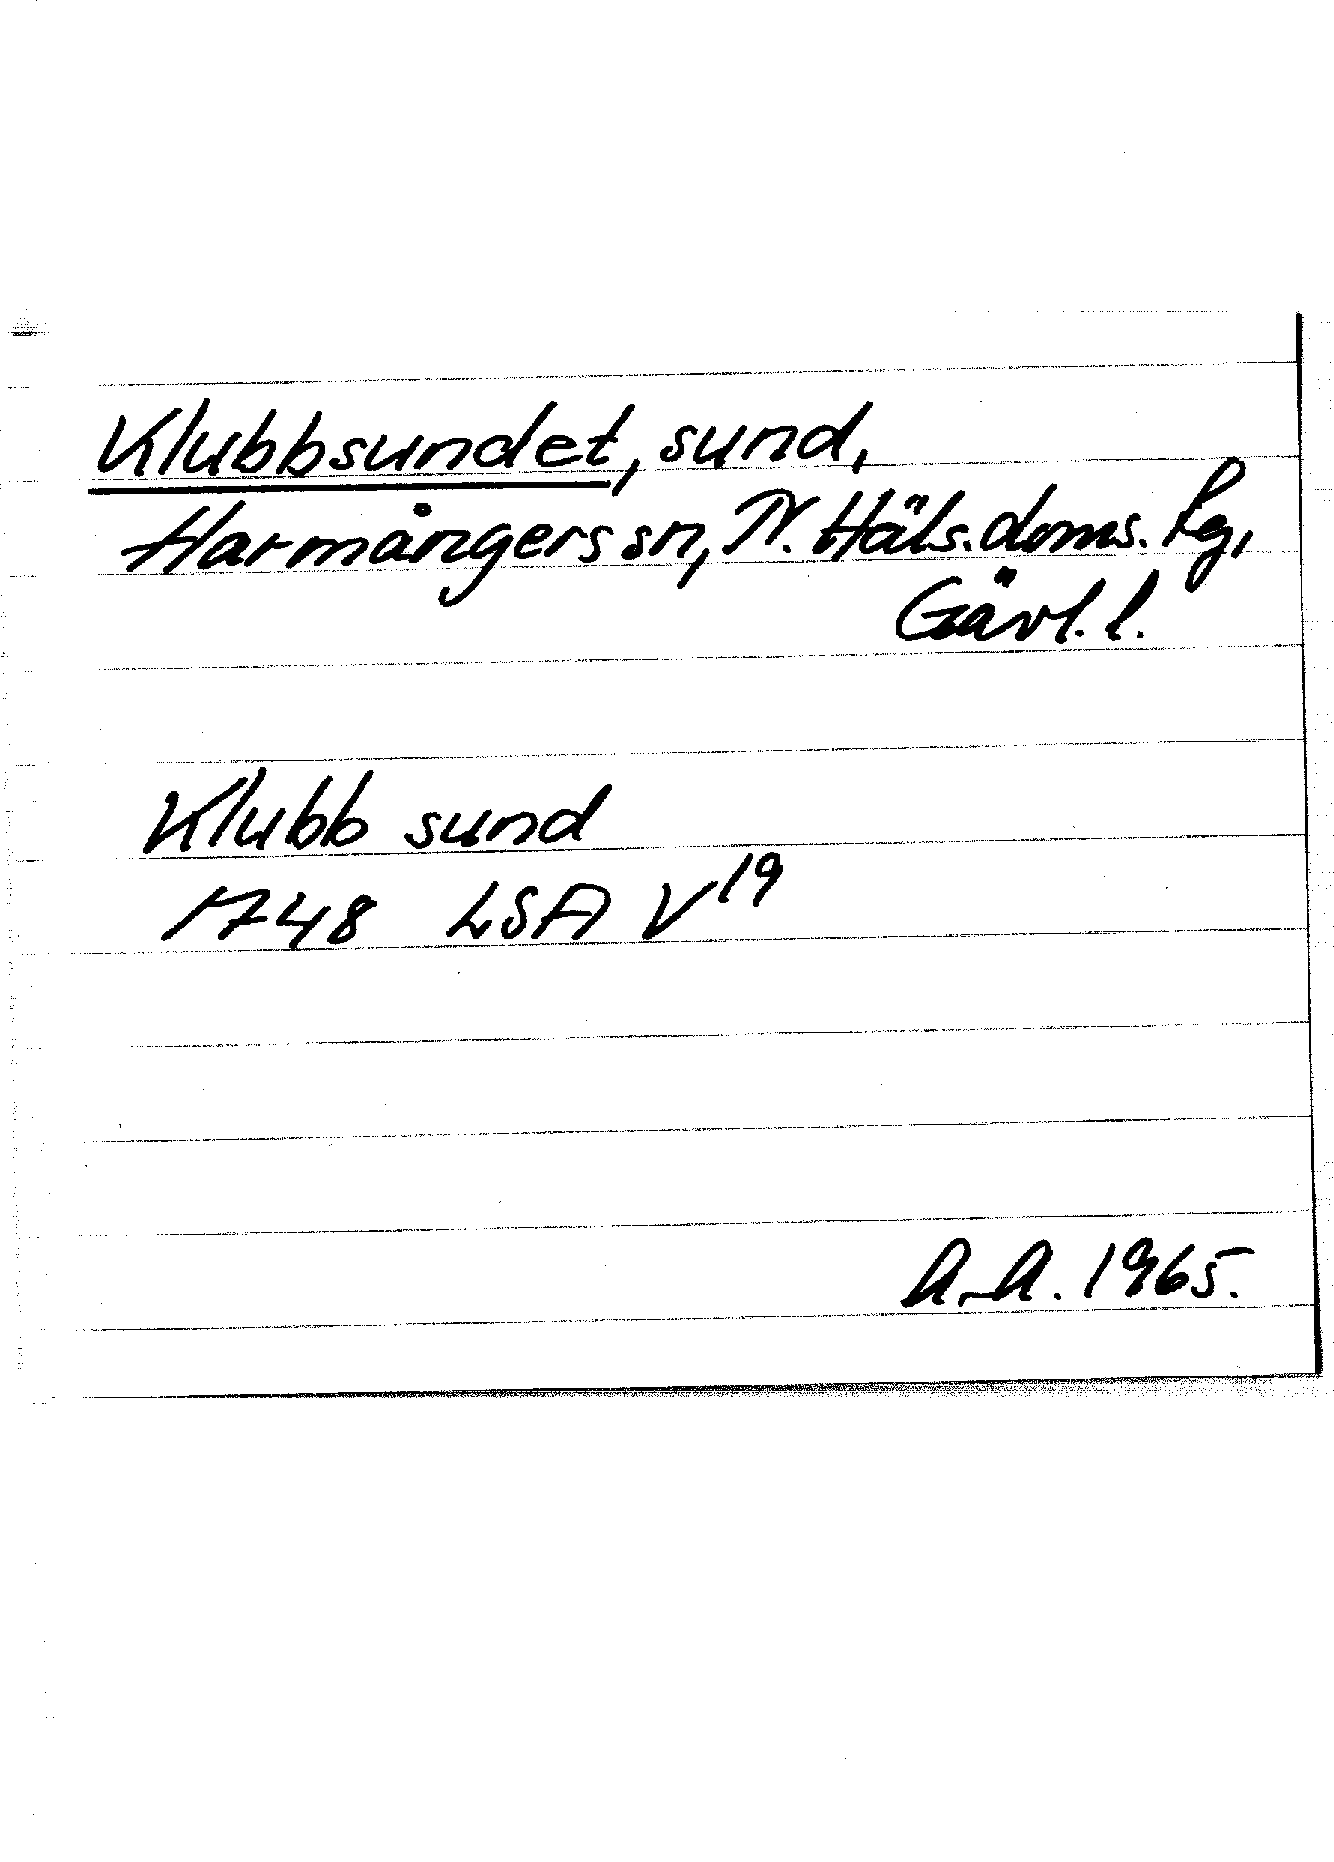 Klubbsundet, sund,
Harmångers sn, N. Häls. doms. lg,
Gävl. l.
Klubb sund
1748 LSA V19
A.A. 1965.